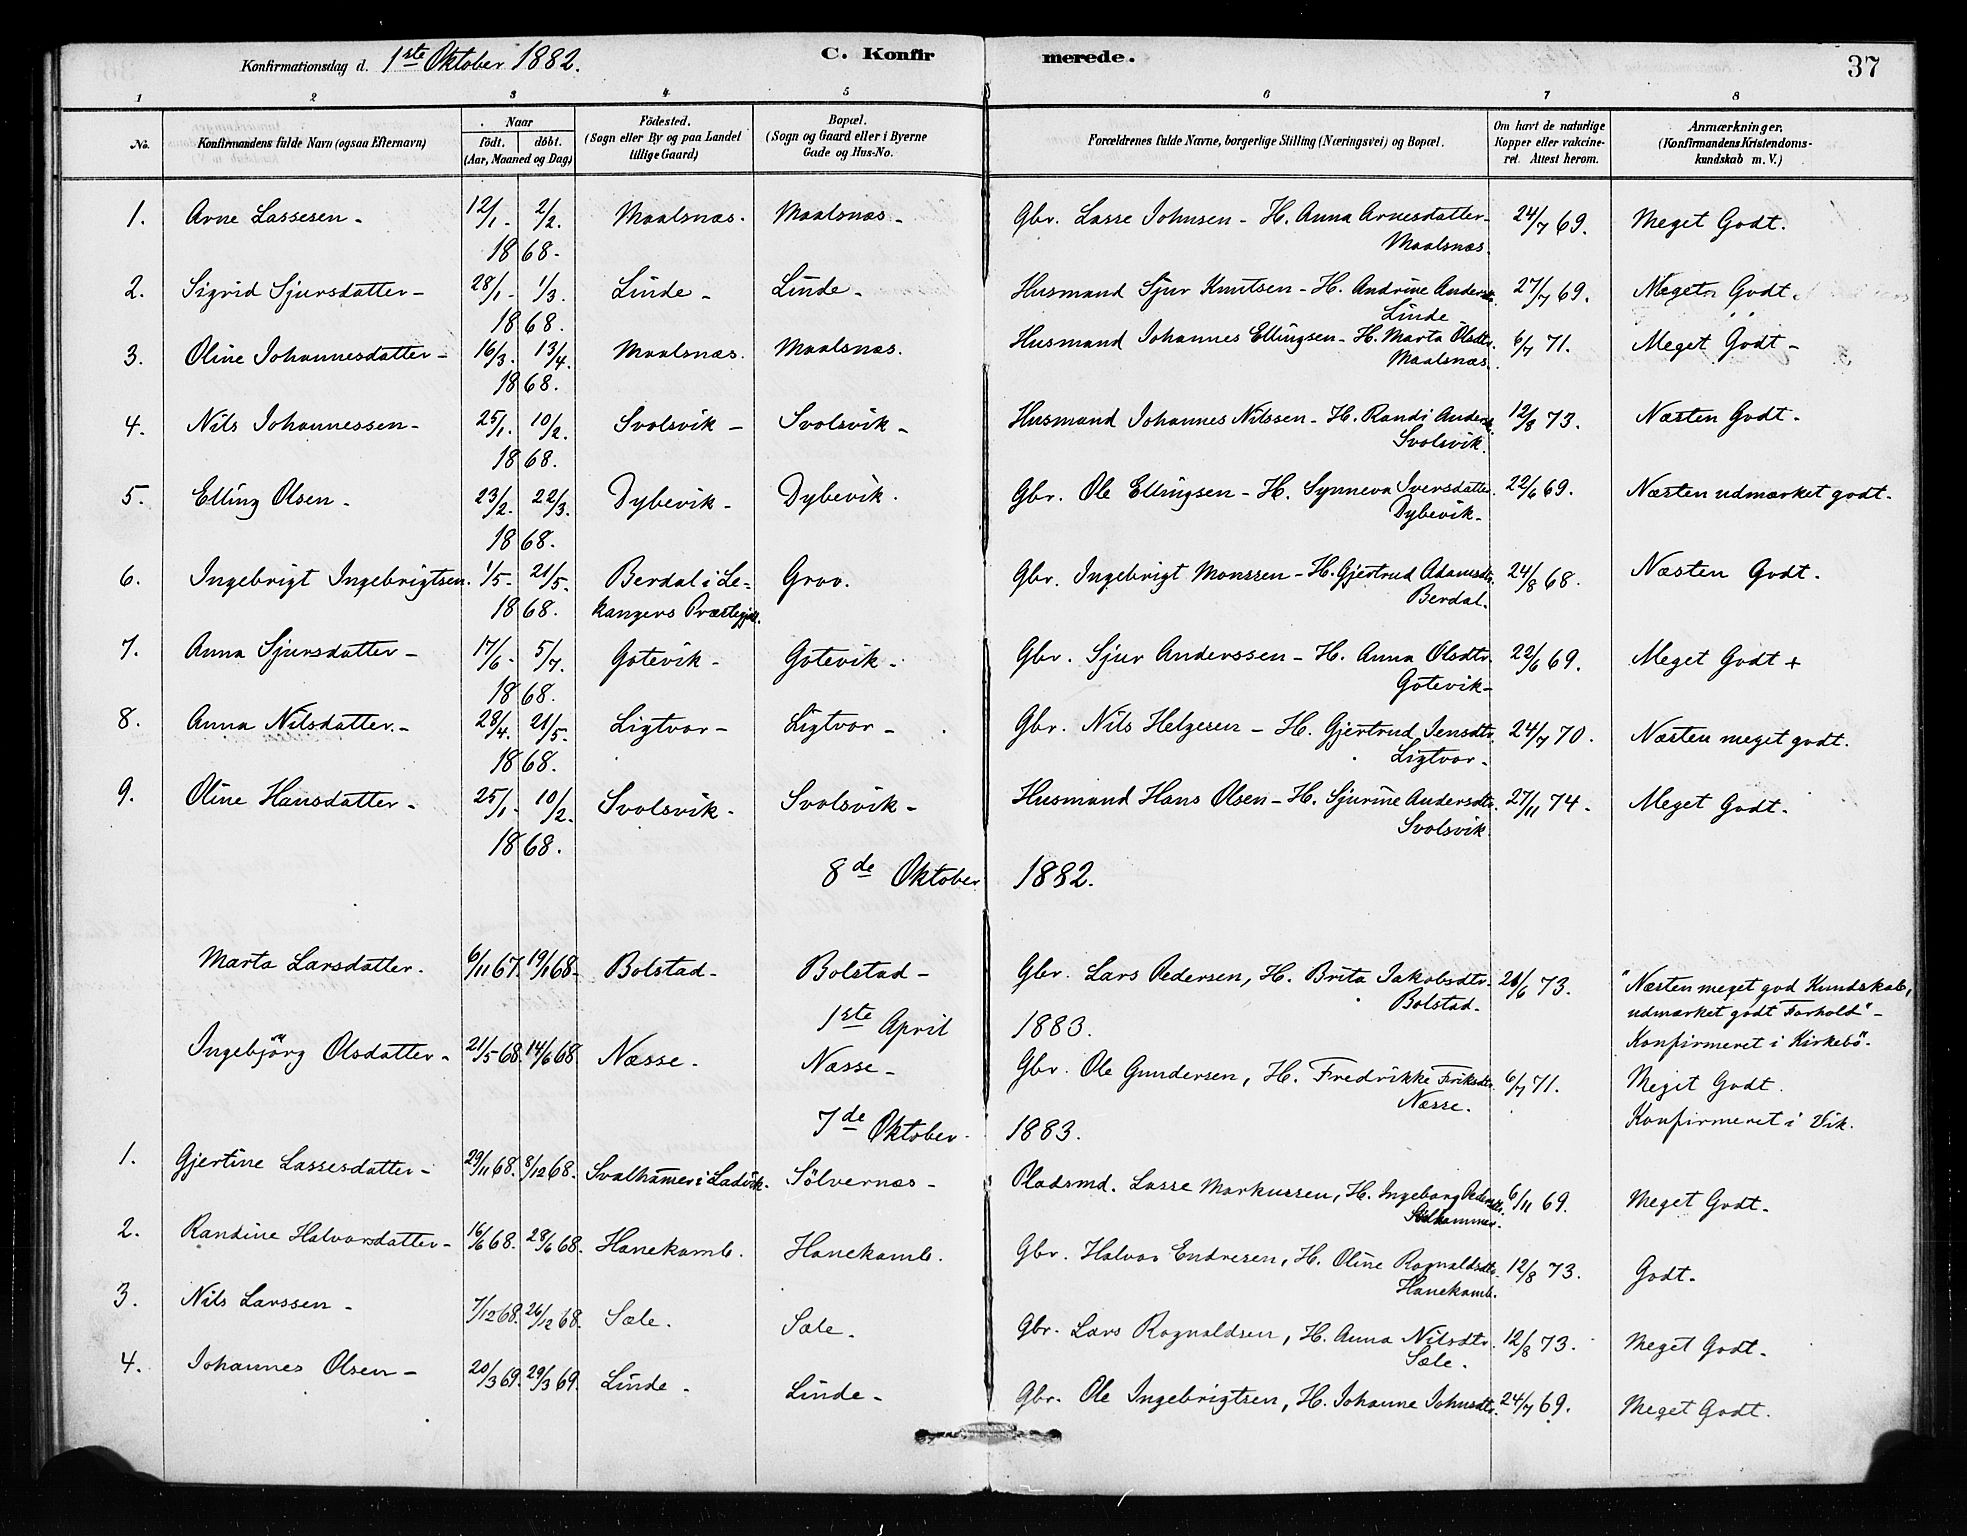 Konfirmationsdag d. 1ste Oktober 1882. C. Konfirmerede. 37
1 2 3 4 5 6 7 8
No. Konfirmandens fulde Navn (ogsaa Efternavn) Naar födt. döbt. (Aar, Maaned og Dag) Födested. (Sogn eller By og paa Landet tillige Gaard) Bopæl. (Sogn og Gaard eller i Byerne Gade og Hus-No. Forældrenes fulde Navne, borgerlige Stilling (Næringsvei) og Bopæl. Om havt de naturlige Kopper eller vakcineret. Attest herom. Anmærkninger. (Konfirmandens Kristendomskundskab m. V.)
1. Arne Lassesen - 12/1. 2/2. Maalsnæs. Maalsnæs - Gbr. Lasse Johnsen - H. Anna Arnesdatter - 24/7 69. Meget Godt.
1868. Maalsnæs.
2. Sigrid Sjursdatter - 28/1. 1/3. Linde - Linde - Husmand Sjur Knutsen - H. Andrine Andersd. 27/7 69. Meget Godt.
1868. Linde
3. Oline Johannesdatter - 16/3. 13/4. Maalsnæs. Maalsnæs. Husmand Johannes Ellingsen - H. Marta Olsdtr. 6/7 71. Meget Godt -
1868. Maalsnæs.
4. Nils Johannessen - 25/1. 10/2. Svolsvik - Svolsvik - Husmand Johannes Nilssen - H. Randi Andersd. 12/8 73. Næsten Godt -
1868. Svolsvik.
5. Elling Olsen - 23/2. 22/3. Dybevik - Dybevik. Gbr. Ole Ellingsen - H. Synneva Iversdatter. 22/6 69. Næsten udmærket godt.
1868. Dybevik -
6. Ingebrigt Ingebrigtsen. 1/5 - 21/5. Berdal i Le- Grov. Gbr. Ingebrigt Monssen - H. Gjertrud Adamsdtr. 24/8 68. Næsten Godt.
1868. kangers Præstegjd. Berdal.
7. Anna Sjursdatter - 17/6 - 5/7. Gotevik - Gotevik - Gbr. Sjur Anderssen - H. Anna Olsdtr. 22/6 69. Meget Godt +
1868. Gotevik -
8. Anna Nilsdatter. - 28/4. 21/5. Ligtvor - Ligtvor - Gbr. Nils Helgesen - H. Gjertrud Jensdtr. 24/7 70. Næsten meget godt.
1868. Ligtvor -
9. Oline Hansdatter - 25/1. 10/2. Svolsvik - Svolsvik - Husmand Hans Olsen - H. Sjurine Andersdtr. 27/11 74. Meget Godt.
1868. Svolsvik.
8de Oktober 1882.
Marta Larsdatter. 6/11 67. 19/1 68. Bolstad - Bolstad - Gbr. Lars Pedersen, H. Brita Jakobsdtr. /6 73. "Næsten meget god Kundskab,
Bolstad. udmærket godt Forhold" -
1ste April 1883. Konfirmeret i Kirkebö.
Ingebjörg Olsdatter - 21/5 68. 14/6 68. Næsse. Næsse - Gbr. Ole Gundersen, H. Fredrikke Eriksdtr. 6/7 71. Meget Godt.
Næsse.
7de Oktober. 1883. Konfirmeret i Vik.
1. Gjertine Lassesdatter - 29/11 68. 8/12 68. Svalhamer i Ladvik. Sölvernæs - Pladsmd. Lasse Markussen, H. Ingeborg Pedersdtr. 6/11 69. Meget Godt.
2. Randine Halvorsdatter - 16/6 68. 28/6 68. Hanekamb. Hanekamb. Gbr. Halvor Endresen, H. Oline Rognaldsdtr. 12/8 73. Godt.
Hanekamb.
3. Nils Larssen - 7/12 68. 26/12 68. Sæle. Sæle. Gbr. Lars Rognaldsen, H. Anna Nilsdtr. 12/8 73. Meget Godt.
Sæle.
4. Johannes Olsen - 20/3 69. 29/3 69. Linde. Linde - Gbr. Ole Ingebrigtsen, H. Johanne Johnsdtr. 24/7 69. Meget Godt.